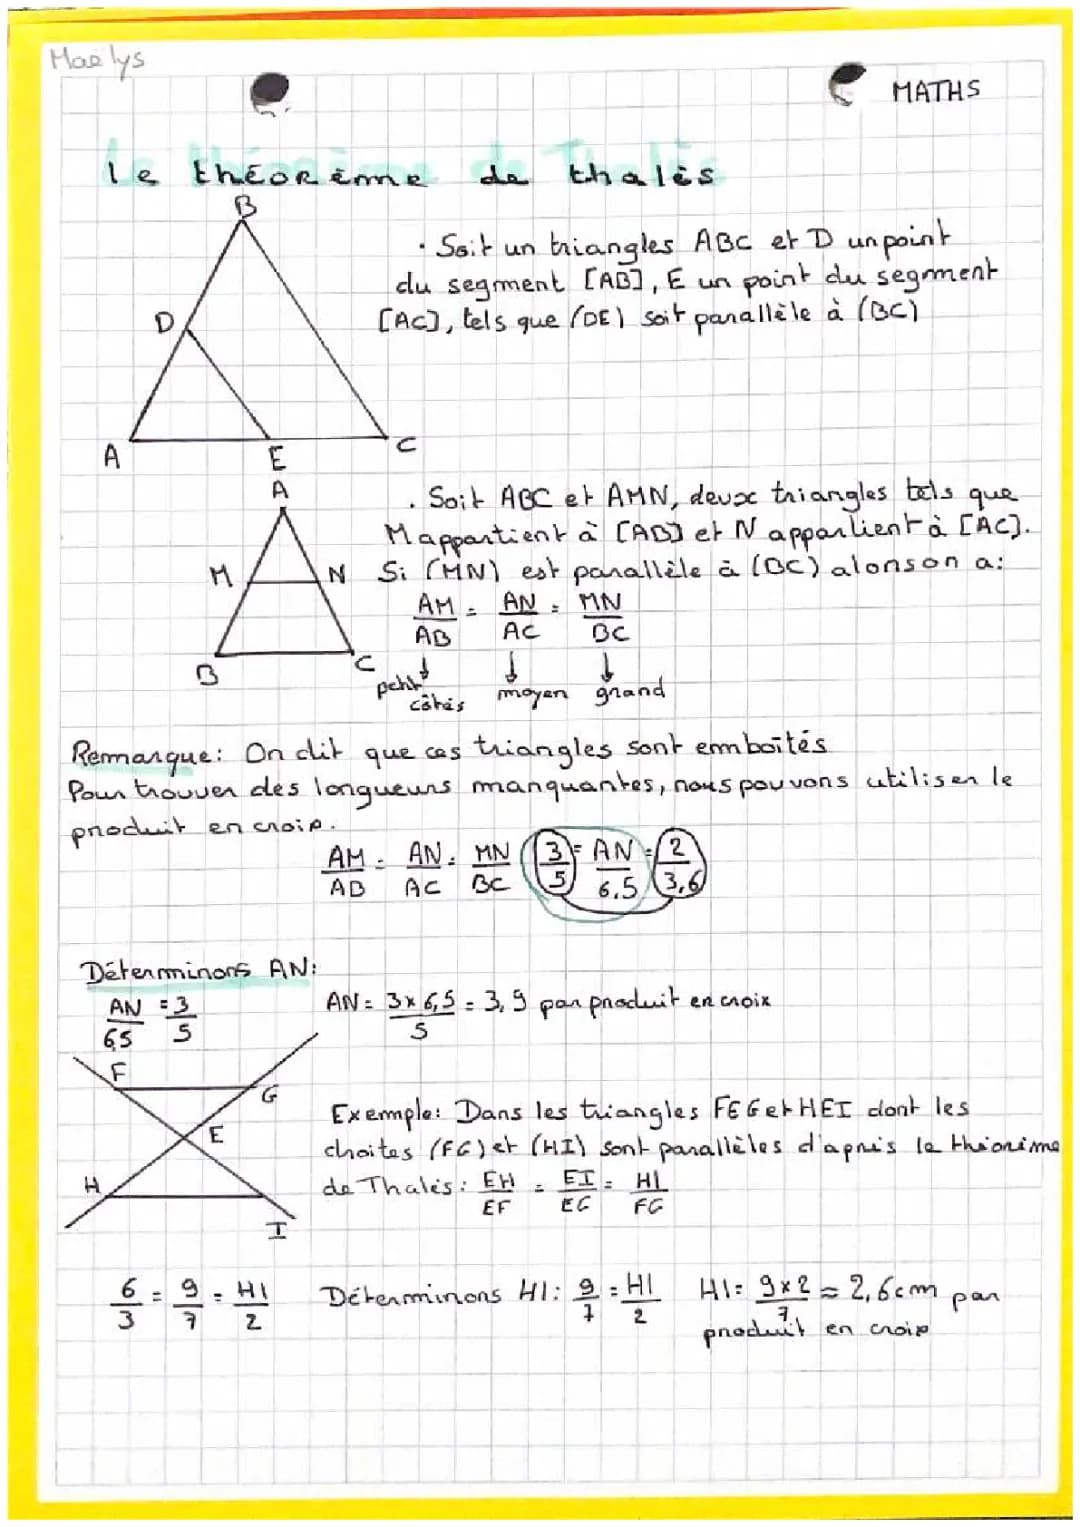 Maelys
MATHS
Le théorème de thalès
B
· Soit un triangles ABC et D un point
du segment [AB], E un point du segment
[AC], tels que (DE) soit parallèle à (BC)
D
A
E
C
A
· Soit ABC et AMN, deux triangles tels que
M appartient à [AB] et N appartient à [AC].
M
N
Si (MN) est parallèle à (BC) alors on a:
AM/AB = AN/AC = MN/BC
B
C
petit côtés moyen grand
Remarque: On dit que ces triangles sont emboîtés
Pour trouver des longueurs manquantes, nous pouvons utiliser le
produit en croix.
AM/AB = AN/AC = MN/BC 3/5 = AN/6,5 = 2/3,6
Déterminons AN:
AN/6,5 = 3/5 AN = 3x6,5/5 = 3,9 par produit en croix
F
G
E
H
I
Exemple: Dans les triangles FEG et HEI dont les
droites (FG) et (HI) sont parallèles d'après le théorème
de Thalès: EH/EF = EI/EG = HI/FG
6/3 = 9/7 = HI/2 Déterminons HI: 9/7 = HI/2 HI = 9x2/7 ≈ 2,6cm par
produit en croix